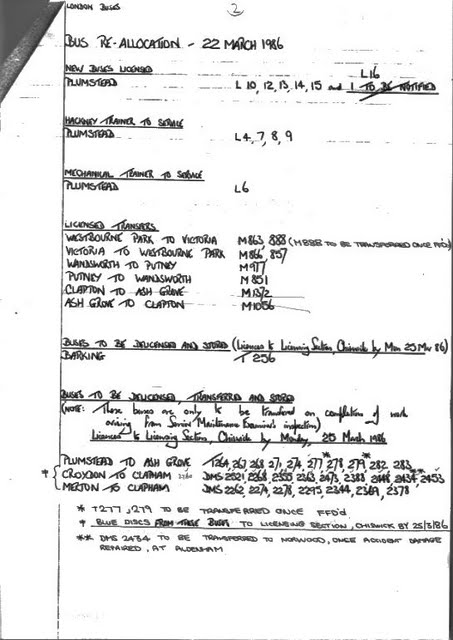 LONDON BUSES
2
BUS RE-ALLOCATION - 22 MARCH 1986
NEW BUSES LICENSED
L16
PLUMSTEAD L 10, 12, 13, 14, 15 and 1 TO BE NOTIFIED
HACKNEY TRAINER TO SERVICE
PLUMSTEAD L4, 7, 8, 9
MECHANICAL TRAINER TO SERVICE
PLUMSTEAD L6
LICENSED TRANSFERS
WESTBOURNE PARK TO VICTORIA M863, 888 (M888 TO BE TRANSFERRED ONCE FFD)
VICTORIA TO WESTBOURNE PARK M866, 857
WANDSWORTH TO PUTNEY M977
PUTNEY TO WANDSWORTH M851
CLAPTON TO ASH GROVE M1372
ASH GROVE TO CLAPTON M1056
BUSES TO BE DELICENSED AND STORED (Licences to Licensing Section, Chiswick by Mon 25 Mar 86)
BARKING T 256
BUSES TO BE DELICENSED, TRANSFERRED AND STORED
(NOTE: These buses are only to be transferred on completion of work
arising from Senior Maintenance Examiner's inspection)
Licences to Licensing Section, Chiswick by Monday, 25 March 1986
PLUMSTEAD TO ASH GROVE T264, 267, 268, 271, 274, 277*, 278, 279*, 282, 283
+ { CROYDON TO CLAPHAM DMS 2521, 2368, 2355, 2363, 2473, 2383, 2448, 2434**, 2453
MERTON TO CLAPHAM DMS 2262, 2274, 2278, 2295, 2344, 2369, 2378
* T277, 279 TO BE TRANSFERRED ONCE FFD'D
+ BLUE DISCS FROM THESE BUSES TO LICENSING SECTION, CHISWICK BY 25/3/86
** DMS 2434 TO BE TRANSFERRED TO NORWOOD, ONCE ACCIDENT DAMAGE
REPAIRED, AT ALDENHAM.